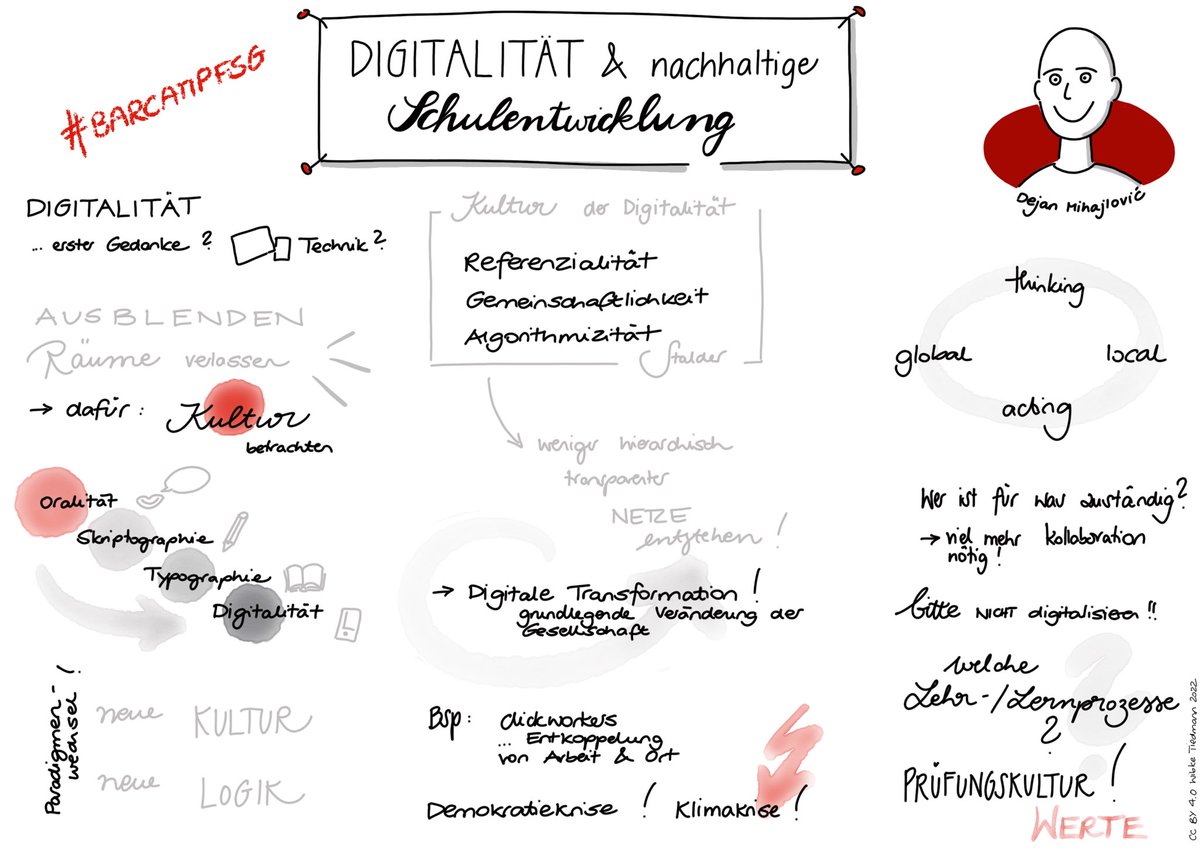 #BARCAMPFSG
DIGITALITÄT & nachhaltige
Schulentwicklung
Dejan Mihajlović
DIGITALITÄT
... erster Gedanke?
Technik?
AUSBLENDEN
Räume verlassen
→ dafür: Kultur
betrachten
Oralität
Skriptographie
Typographie
Digitalität
Paradigmen-
wechsel!
neue KULTUR
neue LOGIK
Kultur der Digitalität
Referenzialität
Gemeinschaftlichkeit
Algorithmizität
Stalder
weniger hierarchisch
transparenter
NETZE
entstehen!
→ Digitale Transformation!
grundlegende Veränderung der
Gesellschaft
Bsp: clickworkers
... Entkoppelung
von Arbeit & Ort
Demokratiekrise! Klimakrise!
thinking
global local
acting
Wer ist für was zuständig?
→ viel mehr Kollaboration
nötig!
bitte NICHT digitalisieren!!
welche
Lehr-/Lernprozesse
?
PRÜFUNGSKULTUR!
WERTE
CC BY 4.0 Wibke Tiedmann 2022